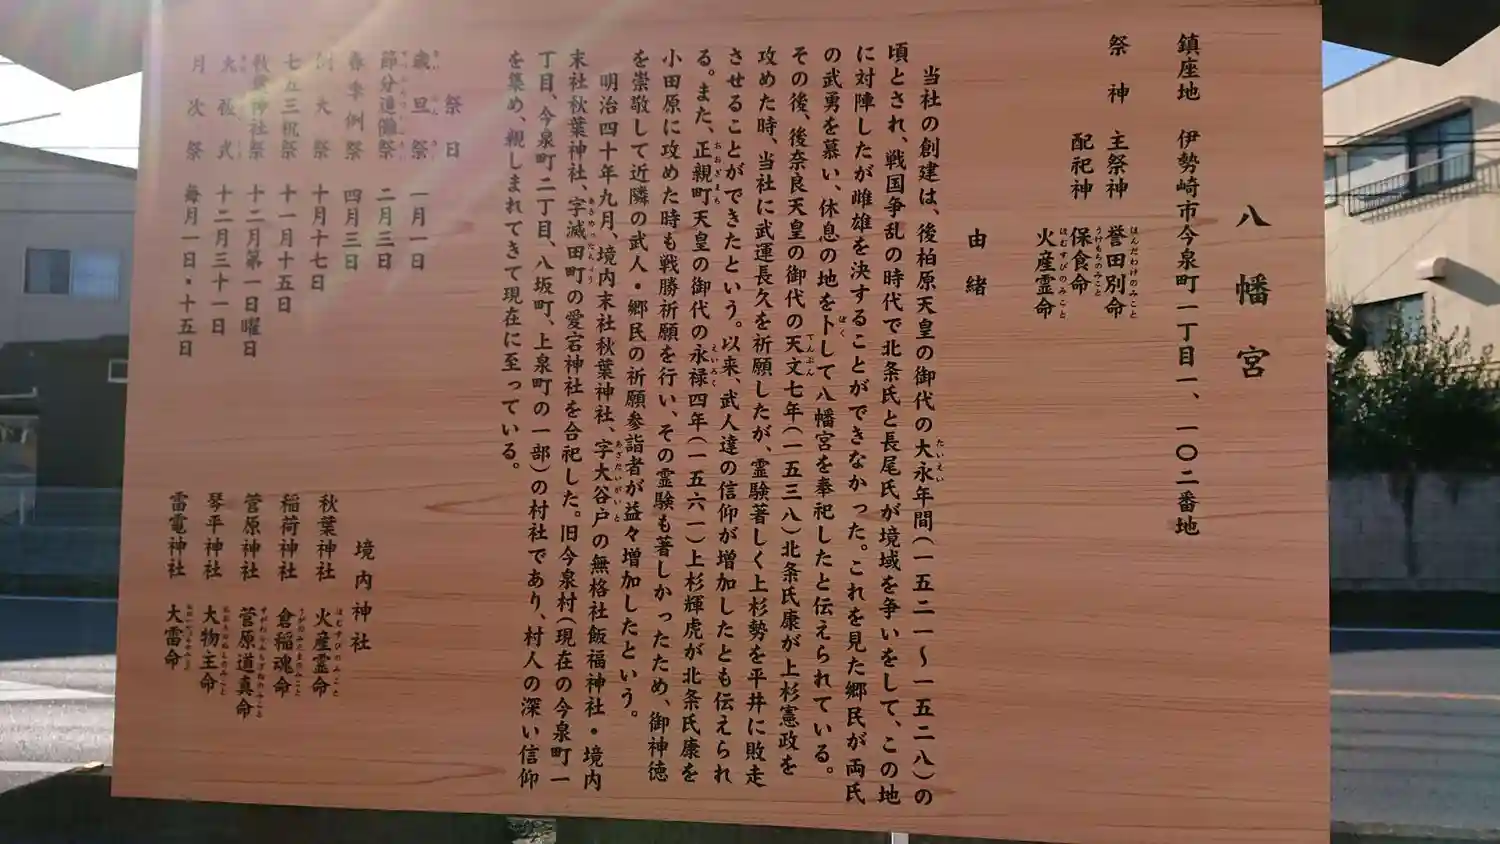 八幡宮
鎮座地 伊勢崎市今泉町一丁目一、一〇二番地
祭神 主祭神 誉田別命
ほんだわけのみこと
配祀神 保食命
うけもちのみこと
火産霊命
ほむすびのみこと
由緒
当社の創建は、後柏原天皇の御代の大永年間(一五二一〜一五二八)の
たいえい
頃とされ、戦国争乱の時代で北条氏と長尾氏が境域を争いをして、この地
に対陣したが雌雄を決することができなかった。これを見た郷民が両氏
の武勇を慕い、休息の地を卜して八幡宮を奉祀したと伝えられている。
ぼく
その後、後奈良天皇の御代の天文七年(一五三八)北条氏康が上杉憲政を
てんぶん
攻めた時、当社に武運長久を祈願したが、霊験著しく上杉勢を平井に敗走
させることができたという。以来、武人達の信仰が増加したとも伝えられ
る。また、正親町天皇の御代の永禄四年(一五六一)上杉輝虎が北条氏康を
おおぎまち えいろく
小田原に攻めた時も戦勝祈願を行い、その霊験も著しかったため、御神徳
を崇敬して近隣の武人・郷民の祈願参詣者が益々増加したという。
明治四十年九月、境内末社秋葉神社、字大谷戸の無格社飯福神社・境内
あざたいがいと
末社秋葉神社、字滅田町の愛宕神社を合祀した。旧今泉村(現在の今泉町一
丁目、今泉町二丁目、八坂町、上泉町の一部)の村社であり、村人の深い信仰
を集め、親しまれてきて現在に至っている。
祭日
歳旦祭 一月一日
節分追儺祭 二月三日
春季例祭 四月三日
例大祭 十月十七日
七五三祝祭 十一月十五日
秋葉神社祭 十二月第一日曜日
大祓式 十二月三十一日
月次祭 毎月一日・十五日
境内神社
秋葉神社 火産霊命
ほむすびのみこと
稲荷神社 倉稲魂命
うがのみたまのみこと
菅原神社 菅原道真命
すがわらみちざねのみこと
琴平神社 大物主命
おおものぬしのみこと
雷電神社 大雷命